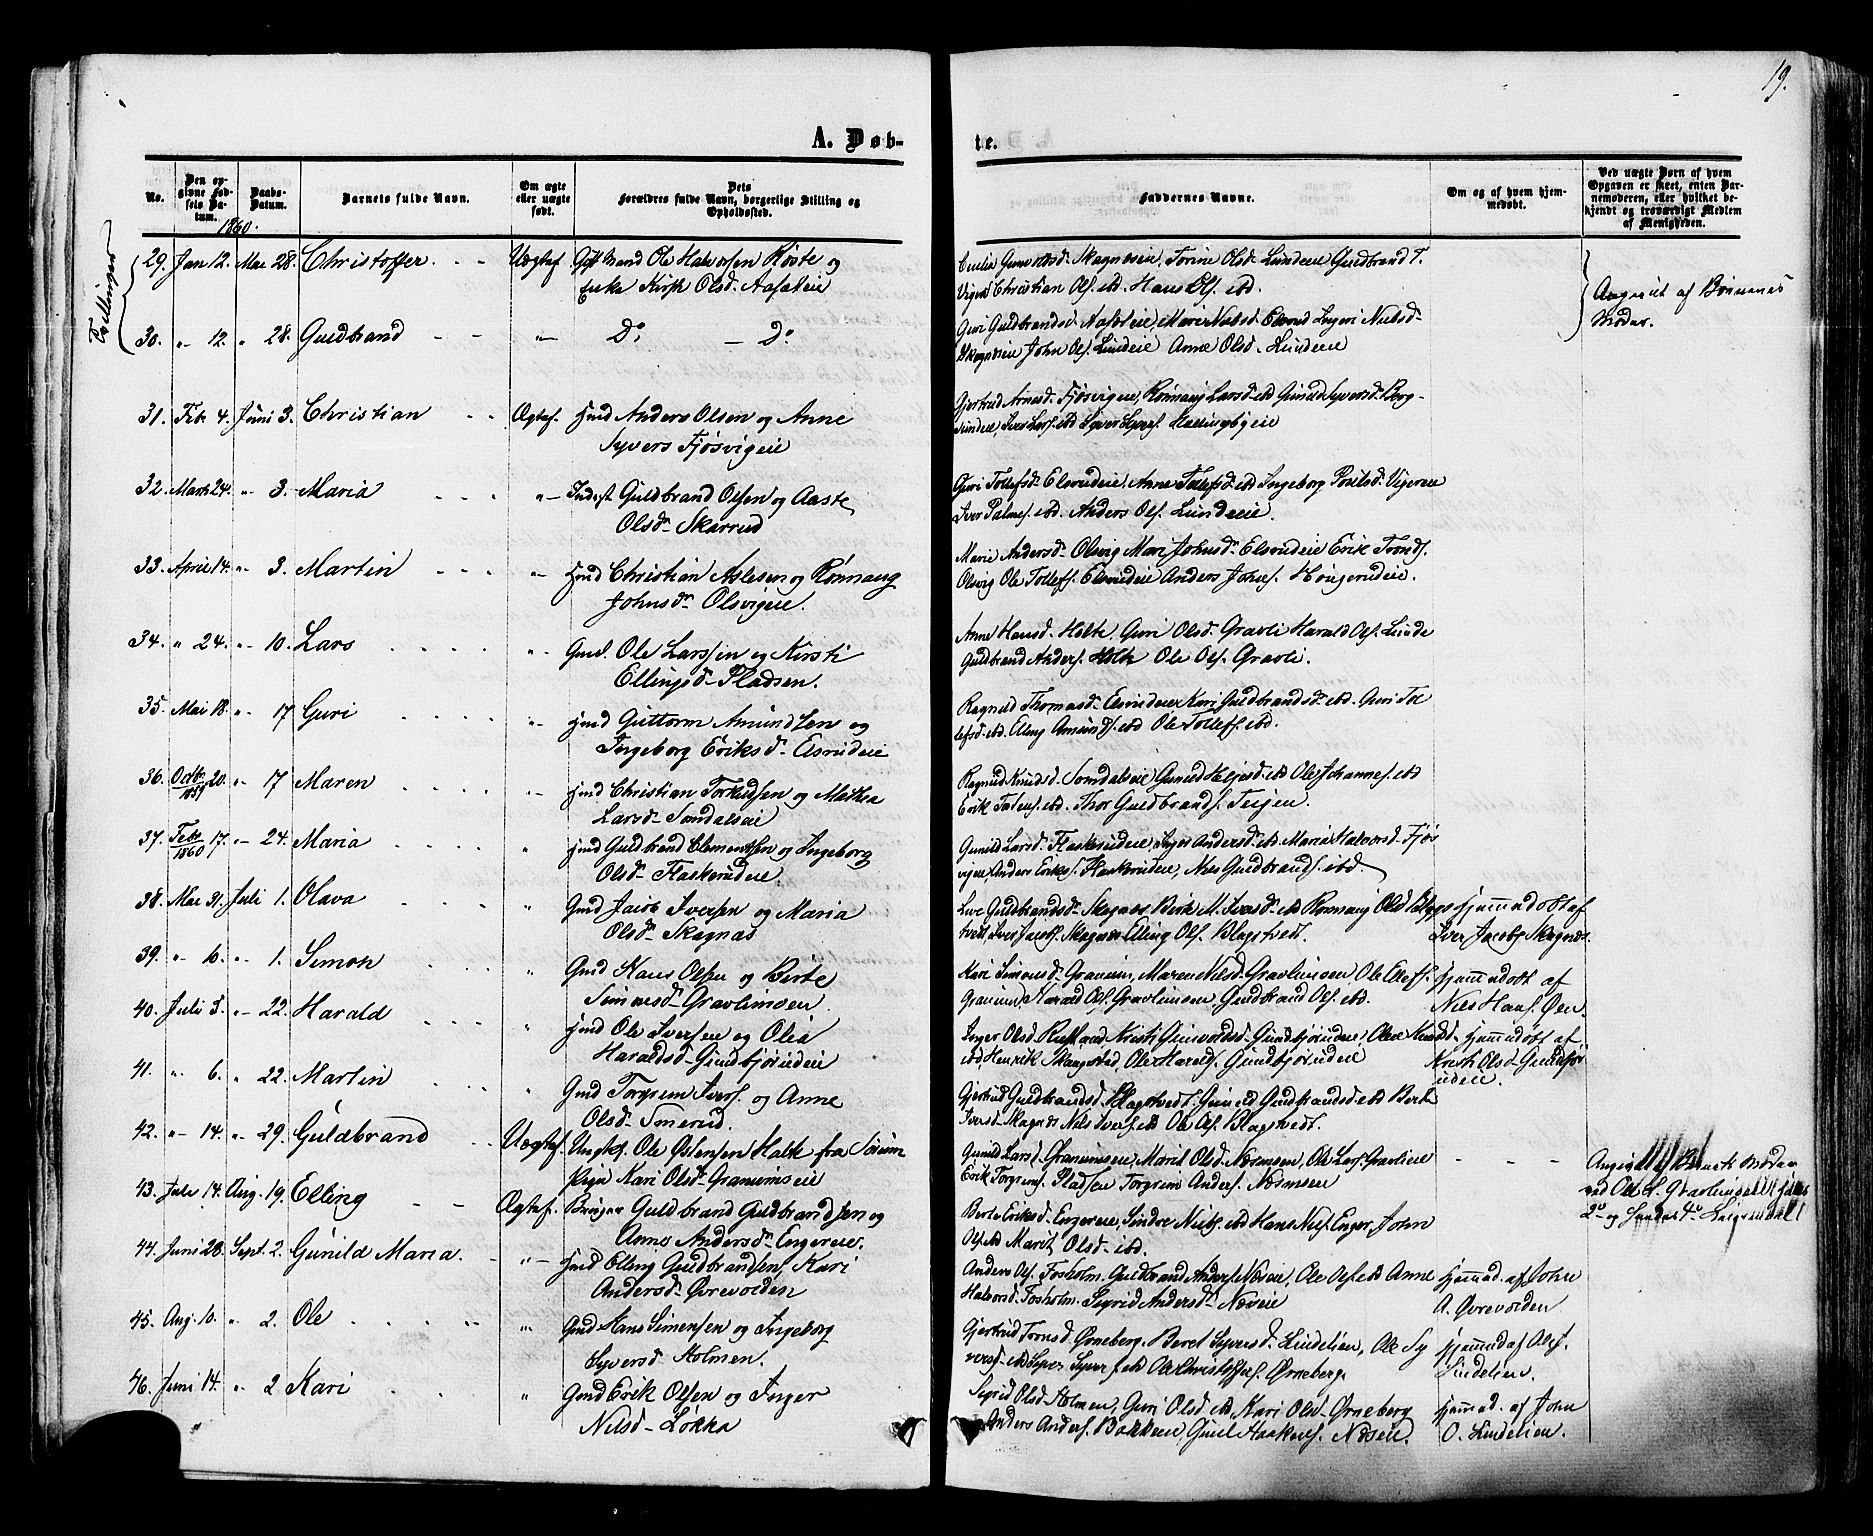 19.
A. Døb-
te.
No.
Den opgivne Fødsels Datum.
Daabs-Datum.
Barnets fulde Navn.
Om ægte eller uægte født.
Dets Forældres fulde Navn, borgerlige Stilling og Opholdssted.
Faddernes Navne.
Om og af hvem hjemmedøbt.
Ved uægte Børn af hvem Opgaven er skeet, enten Barnemoderen, eller hvilket bekjendt og troværdigt Medlem af Menigheden.
1860.
Tvillinger
29. Jan 12. Mai 28. Christoffer Uægtef. Ole Halvorsen Røste og
Enke Olsd. Aasæteie
Skagnæseie, Torine Olsd. Lundeie Guldbrand T.
Christian Ols. ibd. Hans Ols. ibd.
Angivet af Børnenes
Moder.
30. " 12. " 28. Guldbrand " Do - Do
Guri Guldbrandsd. Aasæteie, Mari Nielsd. Elsrud Ingeri Nielsd.
Skagnæseie John Ols. Lundeie Anne Olsd. Lundeie
31. Feb. 4. Juni 3. Christian Ægtef. Hmd Anders Olsen og Anne
Syvers Fjøsvigeie
Gjertrud Arnesd. Fjøsvigeie, Rønnaug Larsd. ibd Gunild Syversd. Berg-
Iver Lars. ibd Syver Syvers. Hallingbyeie
32. Marts 24. " 3. Maria " Inderst Guldbrand Olsen og Aaste
Olsd. Skarrud
Guri Tollefsd. Elsrudeie, Anne Tollefsd. ibd Ingeborg Poulsd. Vigereie
Iver Palmes. ibd. Anders Ols. Lundeeie.
33. April 14. " 3. Martin " Hmd Christian Aslesen og Rønnaug
Johnsd. Olsvigeie.
Marie Andersd. Olsvig Mari Johnsd. Elsrudeie Erik Tronds.
Olsvig Ole Tollefs. Elsrudeie Anders Johns. Haugerudeie.
34. " 24. " 10. Lars " Gmd. Ole Larssen og Kirsti
Ellingsd. Pladsen.
Anne Hansd. Holte, Guri Olsd. Gravli Harald Ols. Lunde
Guldbrand Anders. Holte Ole Ols. Gravli.
35. Mai 18. " 17 Guri " Hmd Guttorm Amundsen og
Ingeborg Eriksd. Elsrudeie
Ragnild Thomasd. Elsrudeie Kari Guldbrandsd. ibd. Guri To
lefsd. ibd. Elling Amunds. ibd Ole Tollefs. ibd.
36. Octbr. 20. 1859 " 17 Maren " Hmd Christian Torkildsen og Mathea
Larsd. Somdalseie
Ragnild Knudsd. Somdalseie Gunild Heljesd. ibd Ole Johannes. ibd
Erik ibd. Thor Guldbrands. Teigen.
37. Febr 17. 1860 " 24. Maria " Hmd Guldbrand Clementsen og Ingeborg
Olsd. Flaskerudeie
Gunild Larsd. Flaskerudeie, Inger Andersd. ibd. Maria Halvorsd. Fjøs
vigeie, Anders Eriks. Flaskerudeie, Niels Guldbrands. ibd.
38. Mai 31. Juli 1. Olava " Gmd Jacob Iversen og Maria
Olsd. Skagnæs
Live Guldbrandsd. Skagnæs Birte M. Iversd. ibd Rønnaug Olsd Blags
tvedt, Iver Jacobs. Skagnæs Elling Ols. Blagstvedt.
Hjemmedøbt af
Iver Jacobs. Skagnæs.
39. " 10. " 1. Simon " Gmd Hans Olsen og Birte
Simonsd. Gravlimoen
Kari Simonsd. Granum, Maren Nilsd. Gravlimoen, Ole Ellefs.
Granum, Harald Ols. Gravlimoen, Guldbrand Ols. ibd.
Hjemmedøbt af
Niels Hans. Øen.
40. Juli 3. " 22. Harald " Hmd Ole Iversen og Olia
Haraldsd. Gundbjørudeie
Inger Olsd. Kristi Gunvoldsd. Gundbjørudeie, Olea
ibd, Henrik Ole Haralds. Gundbjørudeie
Hjemmedøbt af
Kirsti Olsd. Gundbjø
rudeie.
41. " 6. " 22. Martin " Gmd Torgrim Ivers. og Anne
Olsd. Smerud.
Gjertrud Guldbrandsd. Blagstvedt. Gunild Guldbrandsd. ibd Berte
Iversd. Skagnæs Nils Ivers. ibd Ole Ols. Blagstvedt.
42. " 14. " 29. Guldbrand Uægtef. Ungkf. Ole Østensen Holte fra Sørum
Pige Kari Olsd. Granumseie
Gunild Larsd. Granumseie, Marit Olsd. Næsmoen, Ole Lars. Gravlieie
Erik Torgrims. Pladsen Torgrim Anders. Næsmoen
43. Juli 14. Aug. 19. Elling Ægtef. Bruger Guldbrand Guldbrandsen og
Anne Andersd. Engereie.
Berte Eriksd. Engereie, Sindre Niels. ibd Hans Nils. Enger, John
Ols. ibd Marit Olsd. ibd.
44. Juni 28. Sept. 2. Gunild Maria " Hmd Elling Guldbrandsen, Kari
Andersd. Øvrevolden
Anders Ols. Fosholm. Guldbrand Anders. Næseie, Ole Ols. ibd Anne
Halvorsd. Fosholm. Sigrid Andersd. Næseie
Hjemmed. af John
A. Øvrevolden
45. Aug. 10. " 2. Ole " Gmd Hans Simensen og Ingeborg
Syversd. Holmen.
Gjertrud Tronsd. Ørneberg. Beret Syversd. Lindelien, Ole Sy
vers. ibd Syver Syvers. ibd Ole Christoffers. Ørneberg.
Hjemmed af Ole S.
Lindelien.
46. Juni 14. " 2. Kari " Gmd Erik Olsen og Inger
Nilsd. Løkka
Sigrid Olsd. Holmen, Guri Olsd. ibd, Kari Olsd. Ørneberg
Anders Anders. Bakken, Gul Haakens. Næseie.
Hjemmed. af John
O. Lindelien.